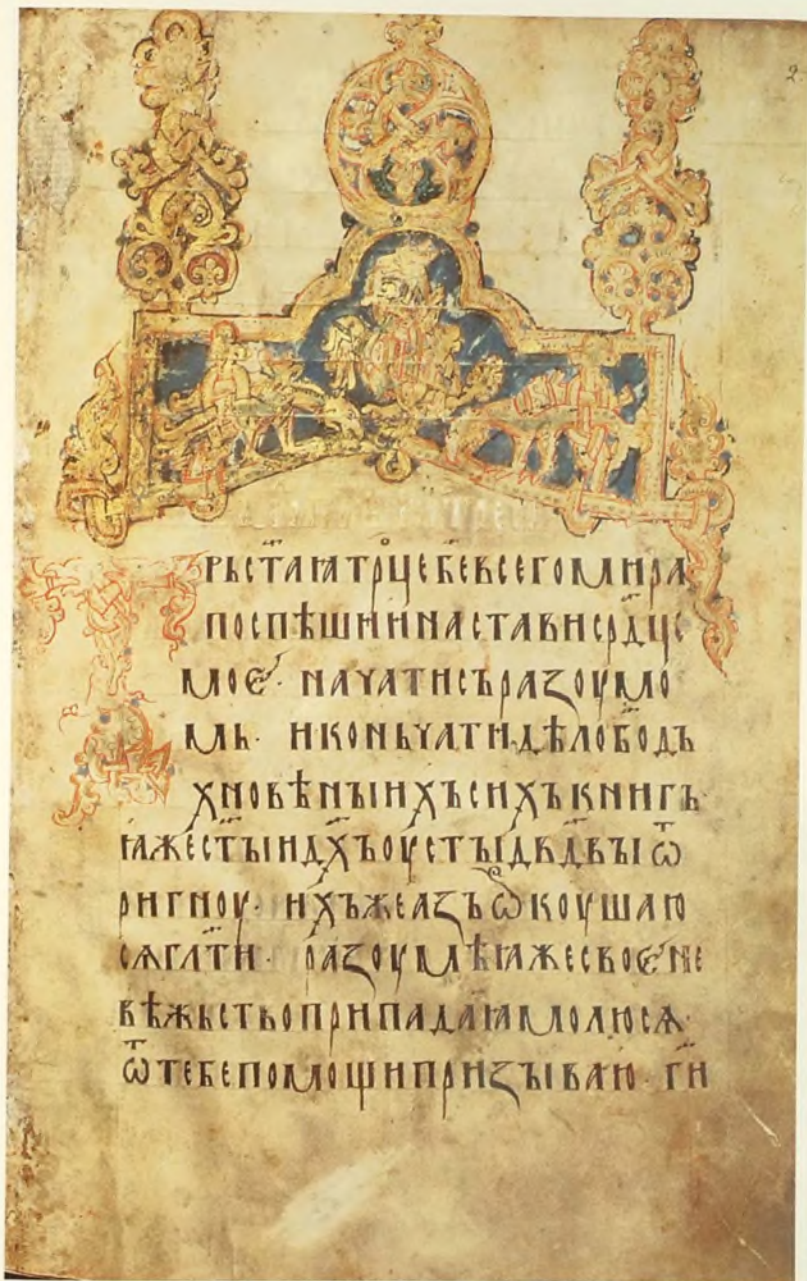 2
Прьст҃аꙗтрⷪ҇цебж҃евсегомира
поспѣшинанастависрⷣце
мое҆· наꙋатисъразоумо
мь· иконьꙋатидѣлобо҃дъ
хновѣныихъсихъкнигъ·
ꙗжест҃ыидх҃ъоустыдв҃двꙑѿ
ригноу· ихъжеазъѡкоушаю
сѧгл҃ти· разоумѣꙗжесвое҆не
вѣжьствоприпадаꙗмолюсѧ·
ѿтебепомощипризываю· гн҃и